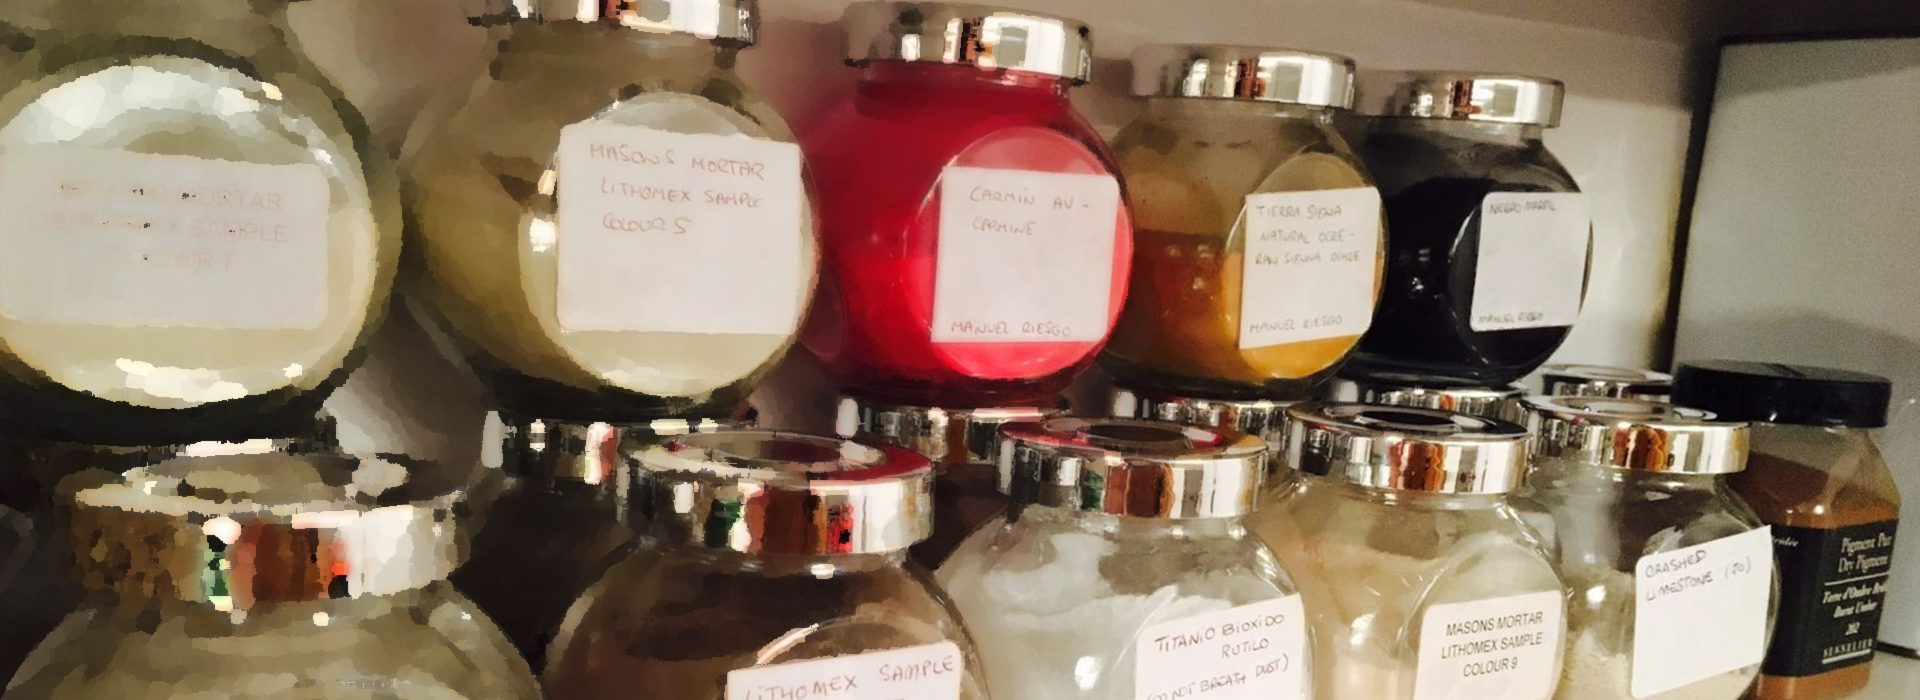 MORTAR
SAMPLE
MASONS MORTAR
LITHOMEX SAMPLE
COLOUR 5
CARMÍN AV -
CARMINE
MANUEL RIESGO
TIERRA SIENA
NATURAL OCRE -
RAW SIENNA OCHRE
MANUEL RIESGO
NEGRO MARFIL
MANUEL RIESGO
LITHOMEX SAMPLE
TITANIO BIOXIDO
RUTILO
(DO NOT BREATH DUST)
MASONS MORTAR
LITHOMEX SAMPLE
COLOUR 9
CRASHED
LIMESTONE (20)
Pigment Pur
Dry Pigment
Terre d'Ombre
Burnt Umber
202
SENNELIER